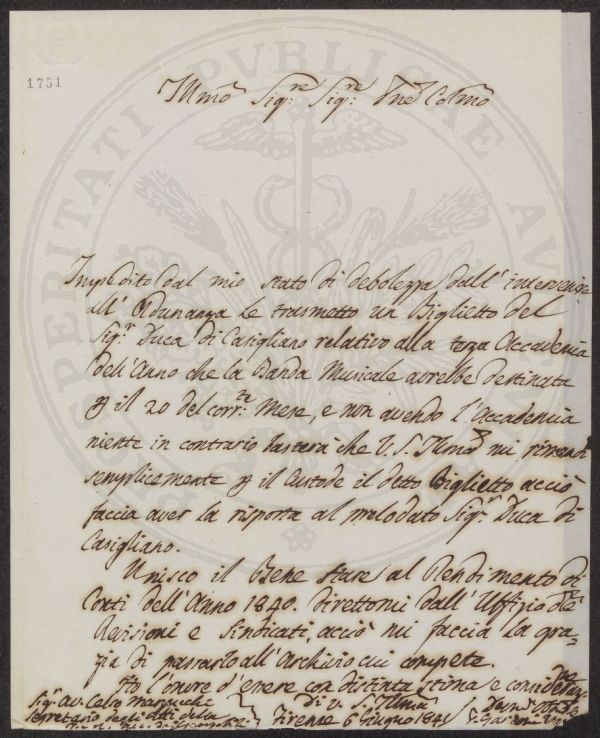 1751
Illmo Sigre Sigre Pne Colmo
Impedito dal mio stato di debolezza dall'intervenire
all'Adunanza Le trasmetto un Biglietto del
Sigr Duca di Casigliano relativo alla terza Accademia
dell'Anno che la Banda Musicale avrebbe destinata
p il 20 del corrte Mese, e non avendo l'Accademia
niente in contrario basterà che V. S. Illma mi rimandi
semplicemente p il Custode il detto Biglietto acciò
faccia aver la risposta al prelodato Sigr Duca di
Casigliano.
Unisco il Bene stare al Rendimento di
Conti dell'Anno 1840. direttomi dall'Uffizio delle
Revisioni e Sindicati, acciò mi faccia la gra-
zia di passarlo all'Archivio cui compete.
Ho l'onore d'essere con distinta stima e consideraz
Sigr Av. Celso Marzucchi
Segretario degli Atti della
Di V. S. Illma
Firenze 6 Giugno 1841
PROSPERITATI PVBLICAE